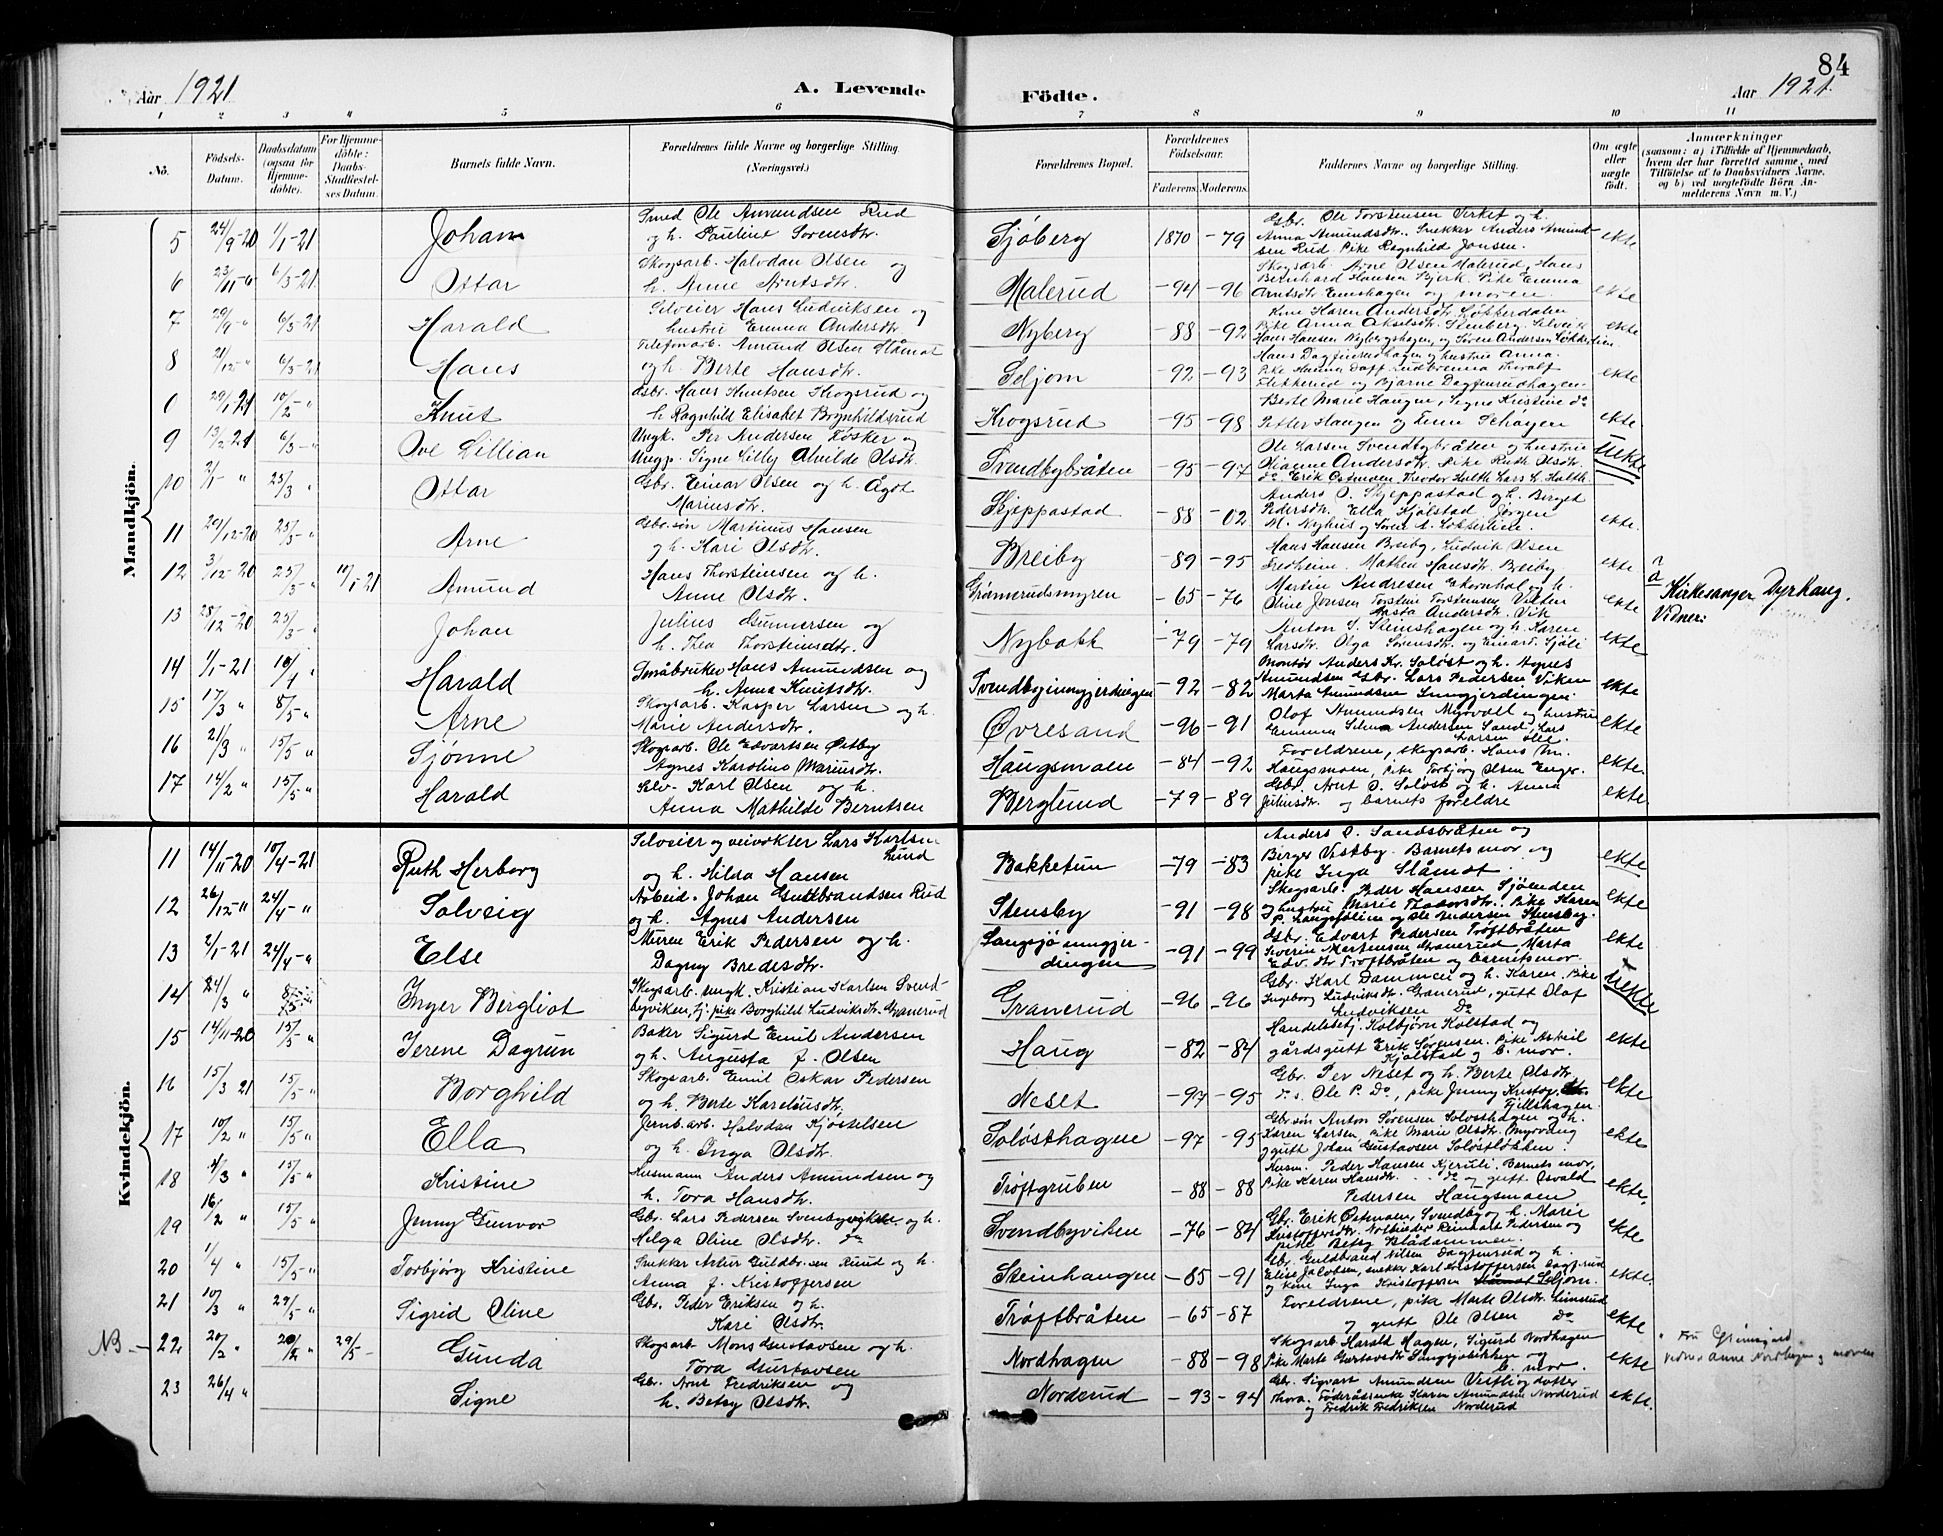 84
Aar 1921
A. Levende
Födte.
Aar 1921.
1 2 3 4 5 6 7 8 9 10 11
No.
Födsels-
Datum.
Daabsdatum
(ogsaa for
Hjemme-
döbte).
For Hjemme-
döbte:
Daabs-
Stadfæstel-
ses Datum.
Barnets fulde Navn.
Forældrenes fulde Navne og borgerlige Stilling
(Næringsvei.)
Forældrenes Bopæl.
Forældrenes
Födselsaar.
Faderens. Moderens.
Faddernes Navne og borgerlige Stilling.
Om ægte
eller
uægte
födt.
Anmærkninger
(saasom: a) i Tilfælde af Hjemmedaab,
hvem der har forrettet samme, med
Tilföielse af to Daabsvidners Navne,
og b) ved uægtefödte Börn An-
melderens Navn m. V.)
Mandkjön.
5 24/9-20 1/1-21 Johan
Smed Ole Amundsen Rud
og h. Pauline Sørensdtr.
Sjøberg 1870 -79
Gbr. Ole Torstensen Virket og h.
Anna Amundsdtr. Snekker Anders Amund-
sen Rud. Pike Ragnhild Jonsen.
ekte
6 6/3-21 Ottar
Skogsarb. Halvdan Olsen og
h. Anne Arntsdtr.
Malerud -94 -96
Skogsarb. Arne Olsen Malerud, Hans
Bernhard Hansen Bjerk. Pike Emma
og moren
ekte
7 6/3-21 Harald
Selveier Hans Ludviksen og
hustru Emma Andersdtr.
Nyberg -88 -92
Kone Karen Andersdtr. Løkkerdalen
Pike Anna Akselsdtr. Stenberg. Selveier
Hans Hansen Nybergshagen og Søren Andersen
ekte
8 21/12 " 6/3-21 Hans
Telefonarb. Amund Olsen Slåmot
og h. Berte Hansdtr.
Seljom -92 -93
Hans Dagfinrudhagen og hustru Anna.
Flikkerud og Bjarne Dagfinrudhagen
ekte
29/1 21 10/2 - " Knut
Gbr. Hans Knutsen Krogsrud og
h Ragnhild Elisabet Brynhildsrud
Krogsrud -95 -98
Berte Marie Haugen, Signe Kristine do
Petter Haugen og
ekte
9 13/2-21 6/3-" Ove Lillian
Ungk. Per Andersen Røsker og
Ungp. Signe Lilly Alvilde Olsdtr.
Svendbybråten -95 -97
Ole Larsen Svendbybråten og hustru
Olianne Andersdtr. Pike Ruth Olsdtr.
do Erik Ostmoen Teodor Holth Lars L. Holth
Uekte
10 25/3 " Ottar
Gbr. Einar Olsen og h. Agot
Mariusdtr.
Skjeppastad -88 -02
Anders O. Skjeppastad og h. Birget
Pedersdtr. Ella Kjølstad. Jørgen
M. Nyhus og Søren A. Løkkerlien.
ekte.
11 29/12-20 25/3-" Arne
Gbr.søn Martinus Hansen
og h. Kari Olsdtr.
Breiby -89 -95
Hans Hansen Breiby, Ludvik Olsen
Fredheim. Mathea Hansdtr. Breiby
ekte
12 3/12-20 25/3 " 10/1-21 Amund
Hans Thorsteinsen og h.
Anne Olsdtr.
Grønerudsmyren -65 -76
Martin Andresen Ekornhol og h.
Oline Jonsen Torstein Torsteinsen Viken
Marta Andersdtr. Vik
ekte
a
Kirkesanger Dyrhaug.
Vidner:
13 28/12-20 25/3-" Johan
Julius Gunnersen og
h. Thea Thorsteinsdtr.
Nybakk -79 -79
Anton S. Steinshagen og h. Karen
Larsdtr. Olga Sørensdtr. og Einar Sjøli
ekte
14 1/1-21 10/4 " Harald
Småbruker Hans Amundsen og
h. Anna Knutsdtr.
Svendbyinngjerdingen -92 -82
Montør Anders Kr. Soløst og h. Agnes
Amundsen Gbr. Lars Pedersen Viken
Marta Amundsen Inngjerdingen.
ekte
15 17/3 " 8/5 " Arne
Skogsarb. Kasper Larsen og h.
Marie Andersdtr.
Øvresand -96 -91
Olaf Amundsen Myrvold og hustru
Emma Andersen Sand, Lars
Larsen
ekte
16 21/3 " 15/5 " Sjønne
Skogsarb. Ole Edvartsen Østby
Agnes Karoline Mariusdtr.
Haugsmoen -84 -92
Foreldrene, skogsarb. Hans M.
Haugsmoen, pike Torbjørg Olsen Enger.
ekte.
17 14/2 " 15/5 " Harald
Selv. Karl Olsen og h.
Anna Mathilde Berntsen
Berglund -79 -89
Gbr. Arnt O. Soløst og h. Anna
Juliusdtr. og barnets foreldre
ekte
Kvindekjön.
11 14/11-20 10/4-21 Ruth Herborg
Selveier og veivokter Lars Karlsen
Lund
og h. Hilda Hansen
Bakketun -79 -83
Anders O. Sandsbråten og
Birger Vestby. Barnets mor og
pike Inga Slåmot.
ekte
12 26/12-" 24/4-" Solveig
Arbeid. Johan Guttbrandsen Rud
og h. Agnes Andersen
Stensby -91 -98
Skogsarb. Peder Hansen Sjøenden
og hustru Marie Thorvsdtr. Pike Karen
P. Langsjølien og Ole Andersen Stensby.
ekte
13 2/1-21 24/4-" Else
Murer Erik Pedersen og h.
Dagny Bredesdtr.
Langsjøinngjer-
dingen -91 -99
Gbr. Edvart Pedersen Trøftbråten
Severin Mortensen Granerud, Marta
Edv. dtr Trøftbråten og barnets mor.
ekte
14 24/3 " Inger Bergliot
Skogsarb. ungk. Kristian Karlsen Svend-
byviken, tj. pike Borghild Ludviksdtr. Granerud
Granerud -96 -96
Gbr. Karl Dammen og h. Karen. Pike
Ingeborg Ludviksdtr. Granerud, gutt Olaf
Ludviksen Do
Uekte
15 14/11-20 15/5-" Irene Dagrun
Baker Sigurd Emil Andersen
og h. Augusta f. Olsen
Haug -82 -84
Handelsbetj. Kolbjørn Kolstad og
gårdsgutt Erik Sørensen. Pike Aslaug
Kjølstad og b. mor.
ekte
16 15/3 21 15/5 " Borghild
Skogsarb. Emil Oskar Pedersen
og h. Berte Kareliusdtr.
Neset -97 -95
Gbr. Per Neset og h. Berte Olsdtr.
s. Ole P. Do, pike Jenny Kristof.
Fjellshagen.
ekte
17 10/2 " 15/5 " Ella
Jernb.arb. Halvdan Kjøstelsen
og h. Inga Olsdtr.
Soløsthagen -97 -95
Gbr.søn Anton Sørensen Soløsthagen og h.
Karen Larsen pike Marie Olsdtr. Myrvang
og gutt Johan Gustavsen Soløstløkken.
ekte
18 15/5 " Kristine
Husmann Anders Amundsen og
h. Tora Hansdtr.
Trøftgruben -88 -88
Husm. Peder Hansen Kjeruli. Barnets mor,
Pike Karen Hansdtr. do og gutt Osvald
Pedersen Haugsmoen
ekte.
19 16/2 " 15/5 " Jenny Gunvor
Gbr. Lars Pedersen Svenbyviken og h.
Helga Oline Olsdtr. do
Svendbyviken -76 -84
Gbr. Erik Østmoen, Svendby og h. Marie
Kristoffersdtr. Reinhart Pedersen og
pike Betsy Blådammen.
ekte
20 1/4 " 15/5 " Torbjørg Kristine
Snekker Artur Guldbr.sen Ruud og h.
Anna f. Kristoffersen
Steinhaugen -85 -91
Gbr. Guldbrand Nilsen Dagfinrud og h.
Elise Jacobsen, snekker Karl Kristoffersen Dagfinrud
og kone Inga Kristoffersen Slåmot Seljom.
ekte.
21 10/3 " 29/5 " Sigrid Oline
Gbr. Peder Eriksen og h.
Kari Olsdtr.
Trøftbråten -65 -87
Foreldrene, pike Marte Olsdtr. Linnerud
og gutt Ole Olsen Do
ekte
NB.- 22 20/2 " 20/2 " 29/5 - Gunda
Skogsarb Mons Gustavsen og h.
Tora Gustavsen
Nordhagen -88 -98
Skogsarb Harald Hagen, Sigurd Nordhagen
Pike Marte Gustavsdtr Langsjøbakken og
b. mor.
ekte
Fru
vidner Anne Nordhagen og moren
23 26/4 " Signe
Gbr. Arne Fredriksen og
h. Betsy Olsdtr.
Norderud -93 -94
Gbr. Sigvart Amundsen Vestli og dotter
Thora. Føderådsenke Karen Amundsen Norderud
og Fredrik Fredriksen Norderud
ekte.